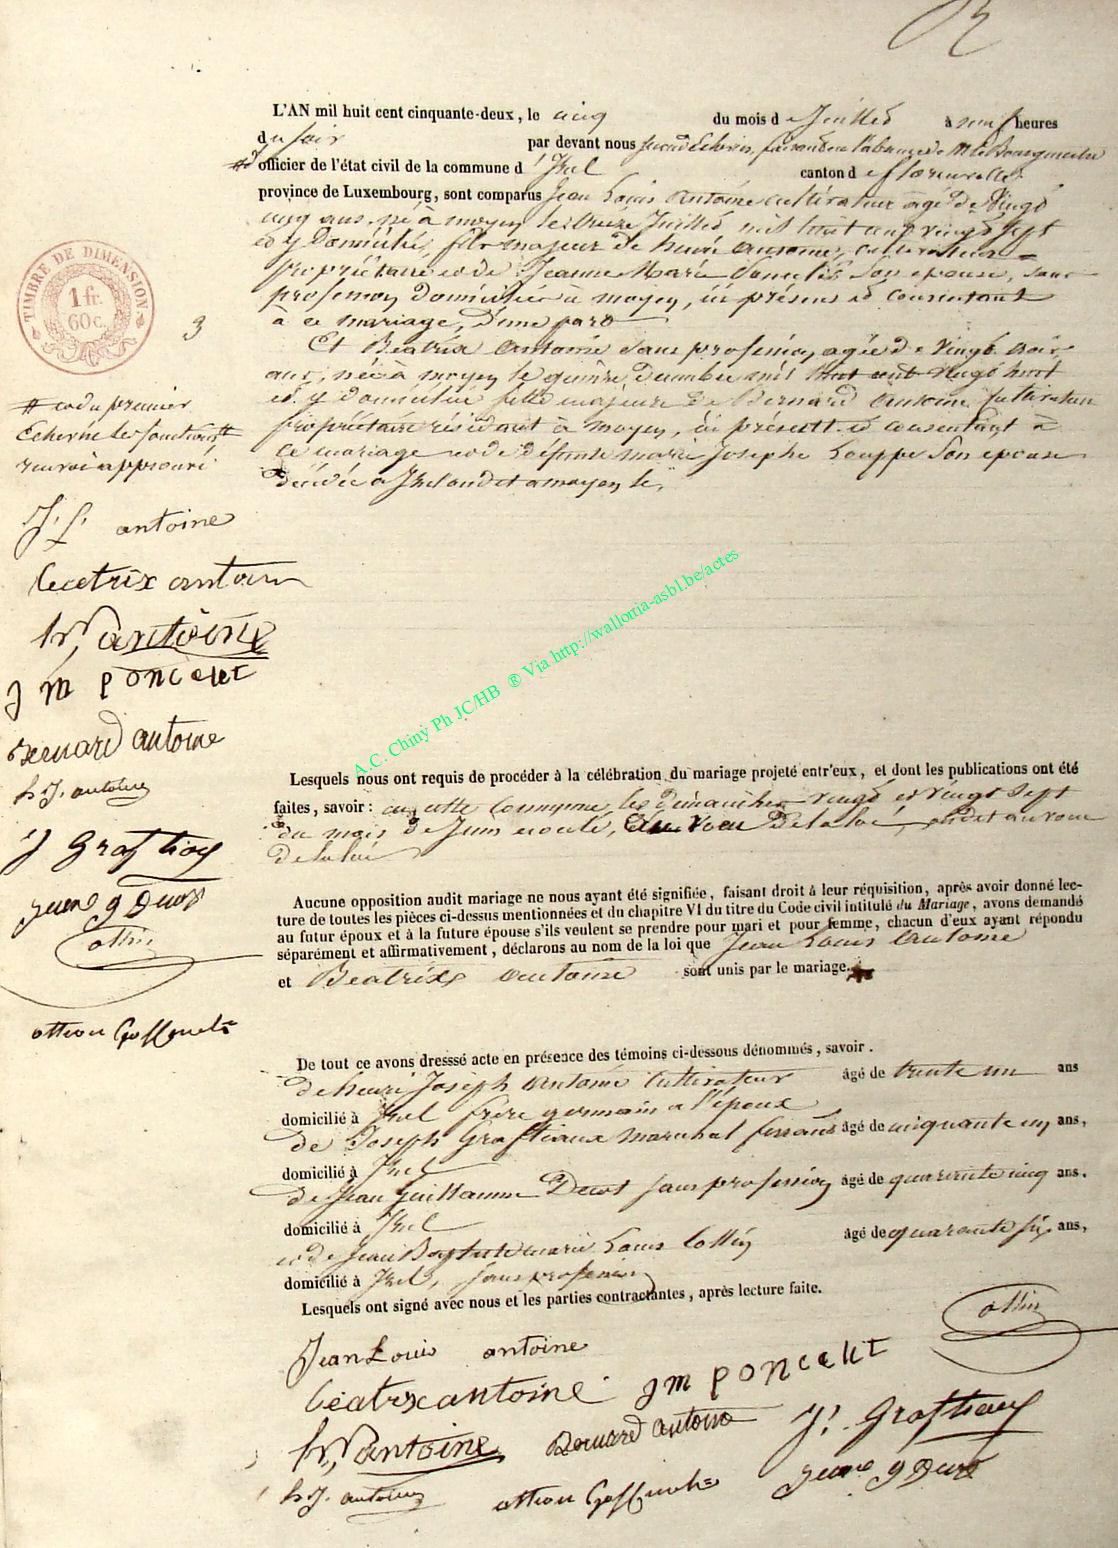 L'AN mil huit cent cinquante-deux, le cinq du mois de Juillet à neuf heures
du soir par devant nous
officier de l'état civil de la commune d'Izel canton de florenville
province de Luxembourg, sont comparus Jean Louis Antoine cultivateur agé de vingt
cinq ans né à moyen le treize Juillet mil huit cent vingt sept
et y Domicilié, fils majeur de henri antoine, cultivateur
propriétaire et de Jeanne Marie Son epouse, sans
profession Domiciliés à moyen, ici présens et consentant
à ce mariage, D'une part
Et Beatrix antoine sans profession, agée de vingt trois
ans, née à moyen le quinze Decembre mil huit cent vingt huit
et y Domiciliée fille majeure De Bernard Antoine Cultivateur
propriétaire résidant à moyen, ici présent et consentant à
ce mariage et de Défunte marie Josephe Son epouse
Décédée a
TIMBRE DE DIMENSION
1 fr.
60 c.
3
# et du premier
Echevin les fonctions #
renvoi approuvé
J. L. antoine
beatrix antoine
antoine
J M PONCELET
Bernard antoine
h J. antoine
A.C. Chiny Ph JC/HB ® Via http://wallonia-asbl.be/actes
Lesquels nous ont requis de procéder à la célébration du mariage projeté entr'eux, et dont les publications ont été
faites, savoir: en cette Commune les dimanches vingt et vingt sept
du mois de Juin ecoulé, au vœu De la loi,
De la loi
Aucune opposition audit mariage ne nous ayant été signifiée, faisant droit à leur réquisition, après avoir donné lec-
ture de toutes les pièces ci-dessus mentionnées et du chapitre VI du titre du Code civil intitulé du Mariage, avons demandé
au futur époux et à la future épouse s'ils veulent se prendre pour mari et pour femme, chacun d'eux ayant répondu
séparément et affirmativement, déclarons au nom de la loi que Jean Louis Antoine
et Beatrix antoine sont unis par le mariage.
De tout ce avons dresssé acte en présence des témoins ci-dessous dénommés, savoir.
de henri Joseph Antoine Cultivateur âgé de trente un ans
domicilié à Izel frère germain a l'époux
de Joseph marechal ferrant âgé de cinquante un ans,
domicilié à Izel
de Jean Guillaume sans profession âgé de quarante cinq ans.
domicilié à Izel
et de Jean Baptiste marie Louis Collin âgé de quarante six ans,
domicilié à Izel, sans profession
Lesquels ont signé avec nous et les parties contractantes, après lecture faite.
Jean Louis antoine
beatrix antoine J M PONCELET
antoine Bernard antoine
h J. antoine